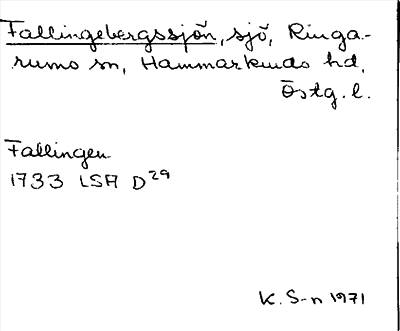 Fallingebergssjön, sjö, Ringa-
rums sn, Hammarkinds hd,
Östg. l.
Fallingen
1733 LSA D29
K. S-n 1971